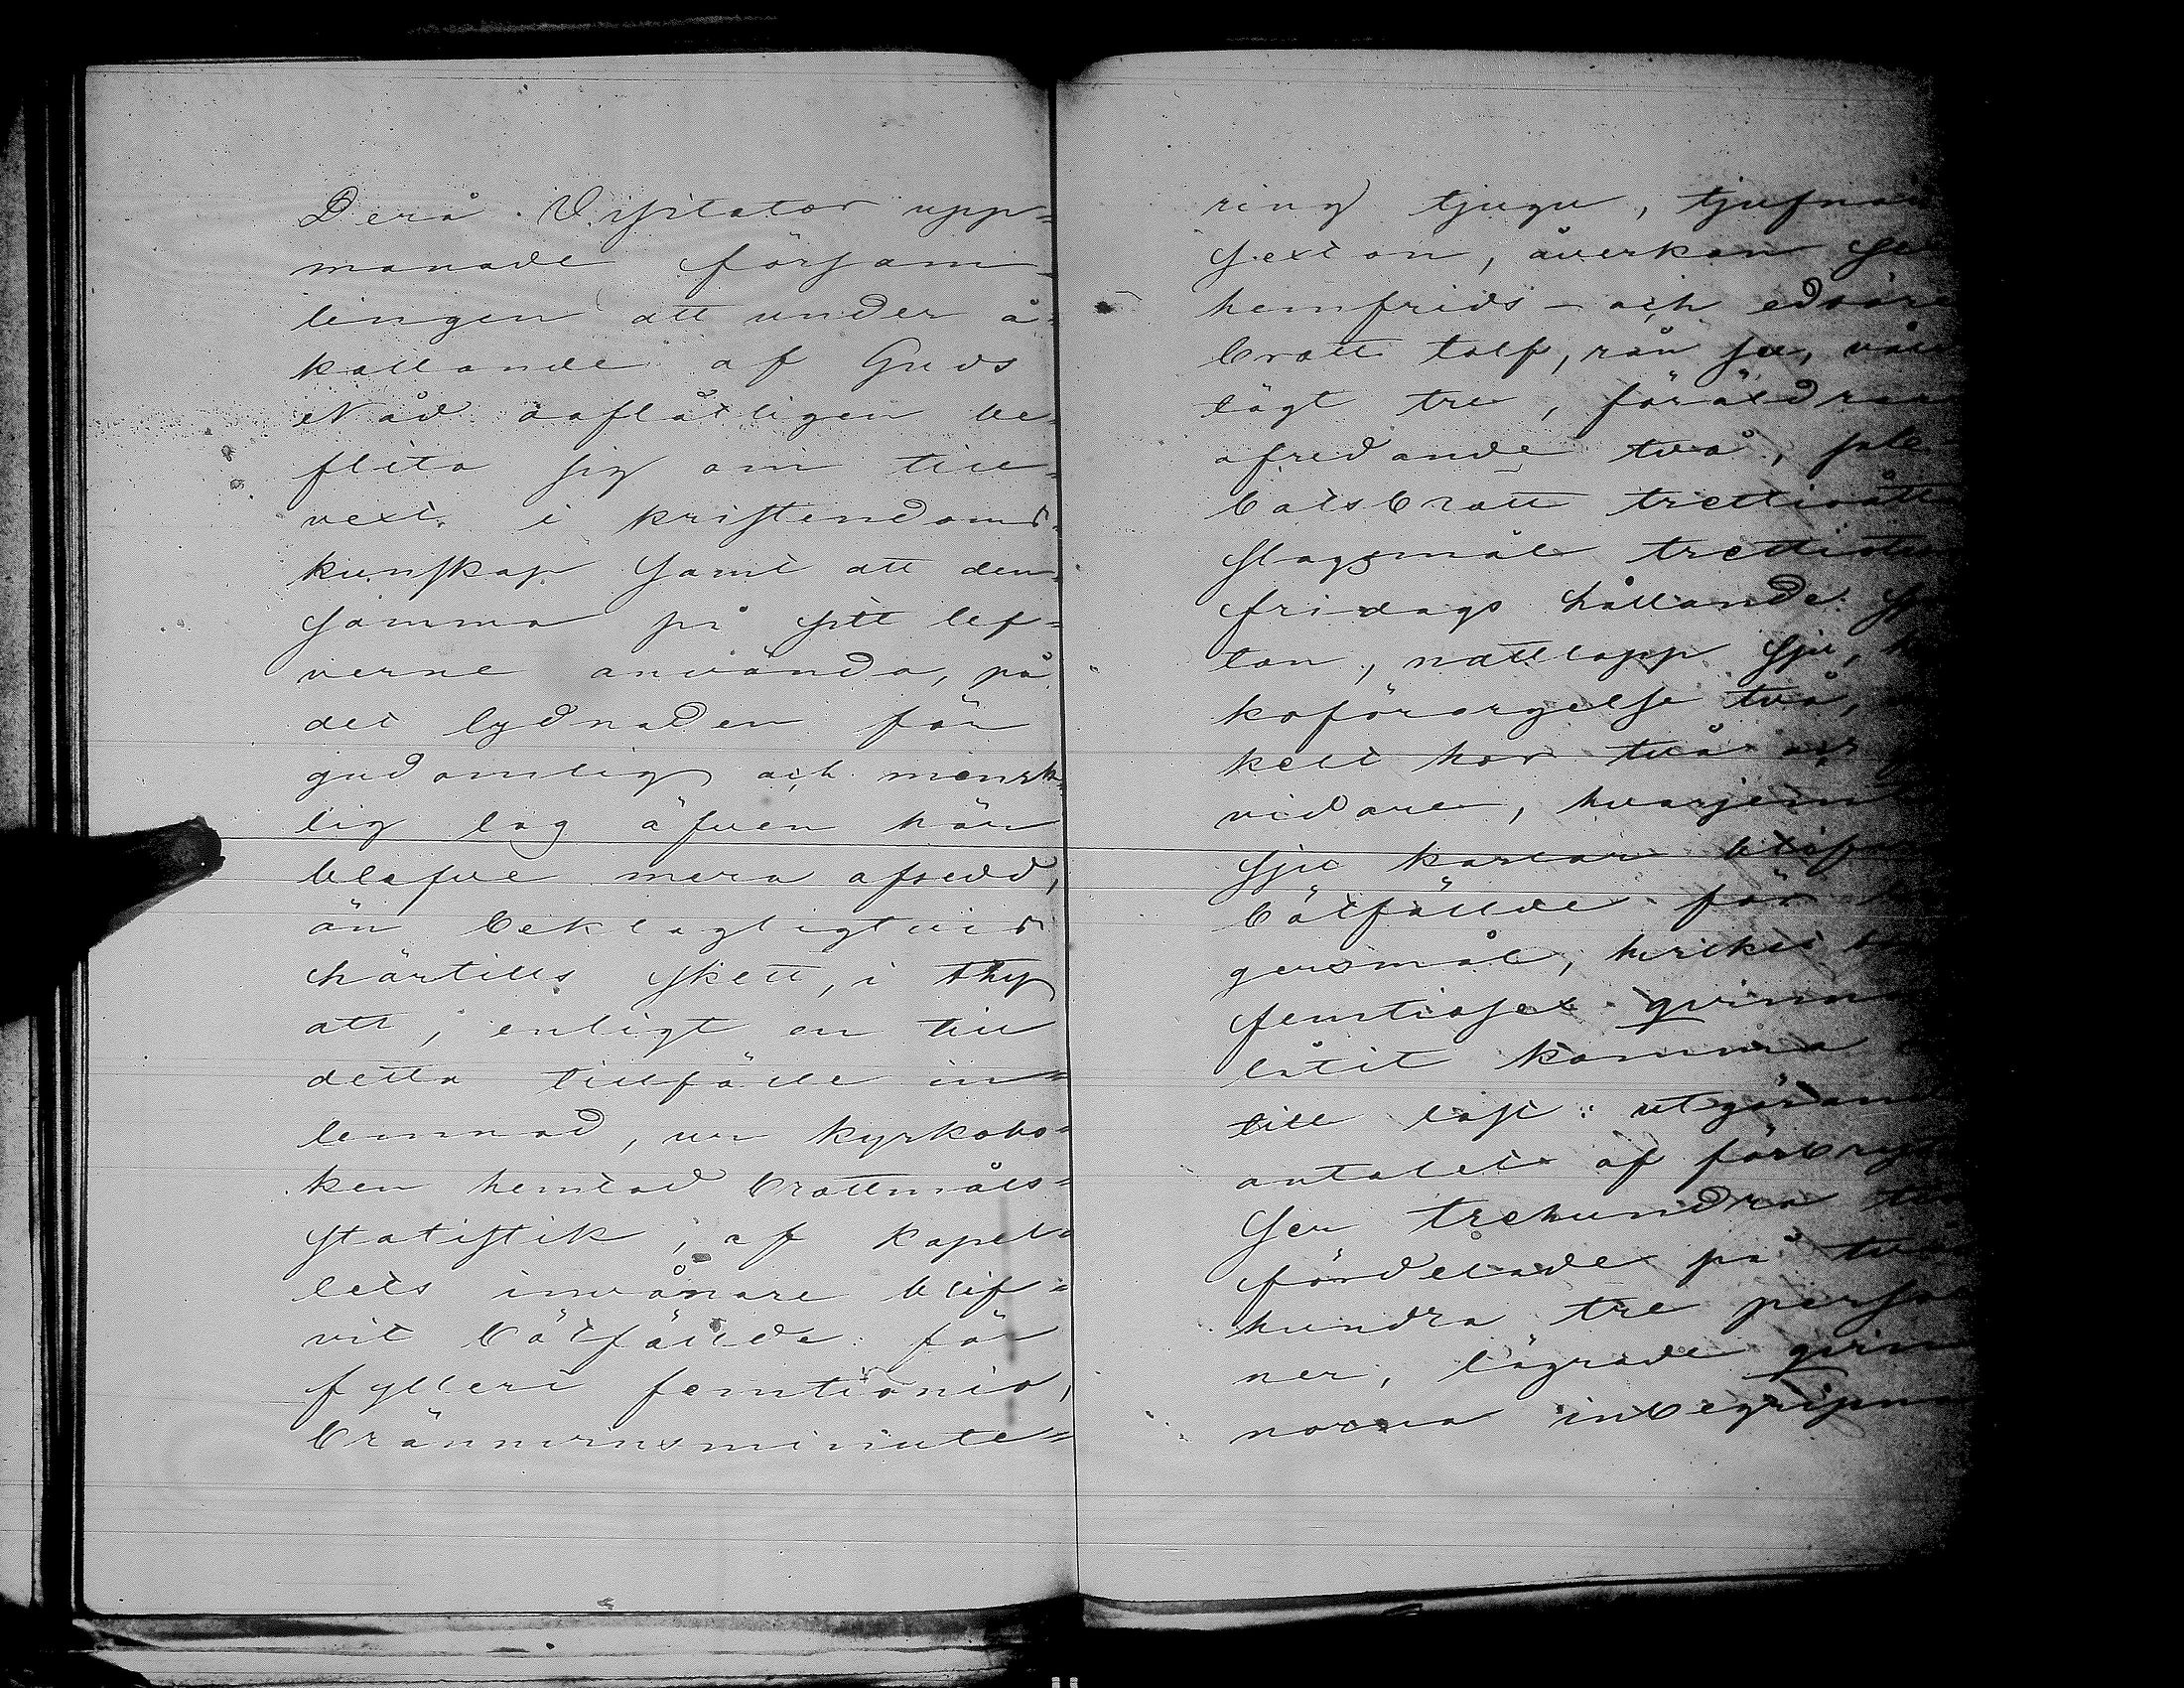 Derå Visitator upp=
manade försam=
lingen att under å=
kallande af Guds
Nåd oaflåtligen be=
flita sig om till=
vext i kristendoms=
kunskap samt att den=
samma på sitt lef=
verne använda, på
det lydnaden för
gudomlig och mensk=
lig lag äfven här
blefve mera afsedd,
än beklagligtvis
härtills skett, i thy
att, enligt en till
detta tillfälle in=
lemnad, ur kyrkobo=
ken hemtad brottmåls=
statistik, af kapel=
lets invånare blif=
vit bötfällde för
fylleri femtionio,
bränvinsminute=
ring tjugu, tjufnad
sexton, åverkan
hemfrids- och edsöre
brott tolf, rån sex, våld
lägt tre, föräldrars
ofredande två, sab=
batsbrott trettioåtta
slagsmål trettiotve
fridags hållande
ton, nattlopp sju,
koförargelse två,
kelt hor två och
vidare, hvarjemte
sju karlar blifvit
bötfällde för
gersmål, hvilket
femtiosex qvinnor
låtit komma
till last: utgörande
antalet af förbrytel
ser trehundra
fördelade på två
hundra tre perso
ner, lägrade qvin
norna inbegripna